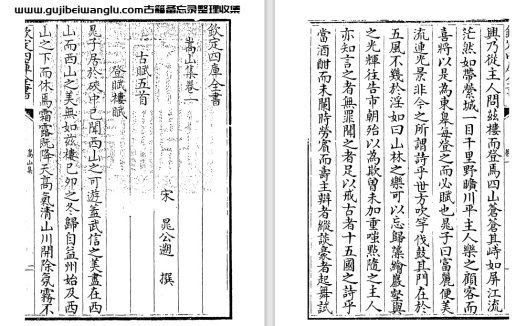 www.gujibeiwanglu.com古籍备忘录整理收集
欽定四庫全書
嵩山集卷一
宋 晁公遡 撰
古賦五首
登賦樓賦
晁子居於峽中已聞西山之可遊蓋武信之美盡在西
山而西山之美無如茲樓已卯之冬歸自益州始及西
山之下而休焉霜露既降天高氣清山川開除氛霧不
欽定四庫全書
嵩山集
興乃從主人問茲樓而登焉四山蒼蒼其峙如屏江流
茫然如帶縈城一目千里野曠川平主人樂之顧客而
喜將以是為東皋每登之而必賦也晁子曰富麗便美
流連光景非今之所謂詩乎世方吹竽伐鼓其門在於
五風不幾於淫如曰山林之樂可以忘歸藻繪巖壑與
之光輝往告市朝殆以為欺曾未加重嗤點隨之主人
亦知言之者無罪聞之者足以戒古者十五國之詩乎
當酒酣而未闌時勞賓而壽主辯者縱談豪者起舞試